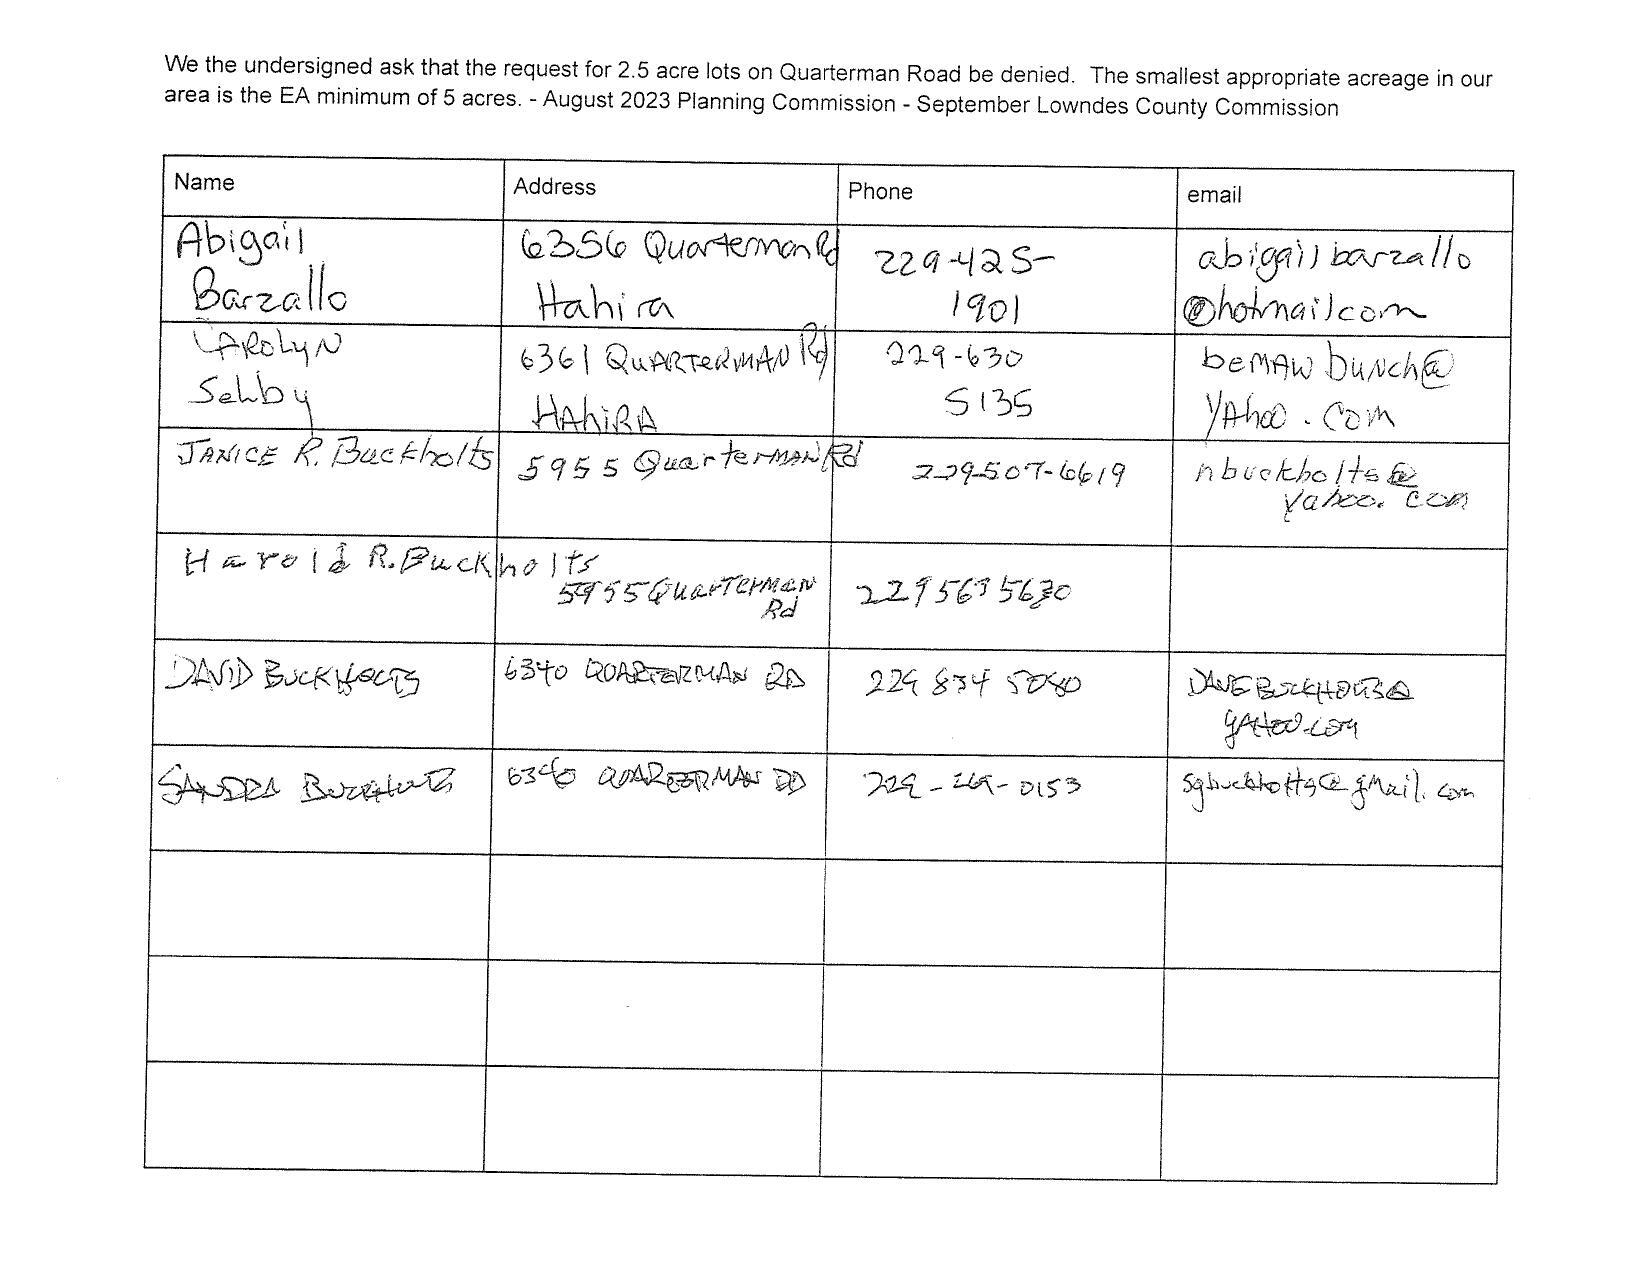 We the undersigned ask that the request for 2.5 acre lots on Quarterman Road be denied. The smallest appropriate acreage in our
area is the EA minimum of 5 acres. - August 2023 Planning Commission - September Lowndes County Commission
Name Address Phone email
Abigail 6356 Quarterman Rd 229-425- abigailbarzallo
Barzallo Hahira 1901 @hotmailcom
CAROLYN 6361 QUARTERMAN Rd 229-630 beMAW bunch@
Selby HAHIRA 5135 YAhoo.com
JANICE R. Buckholts 5955 QuarterMAN Rd 229-507-6619 nbuckholts@
yahoo.com
Harold R. Buckholts
5955 QuarTerMan 229563 5630
Rd
DAVID BUCKHOLTS 6340 QUARTERMAN RD 229 834 5080 DAVEBUCKHOLTS@
yAHOO.com
SANDRA BUCKHOLTS 6340 QUARTERMAN RD 229-269-0153 sgbuckholts@gMail.com